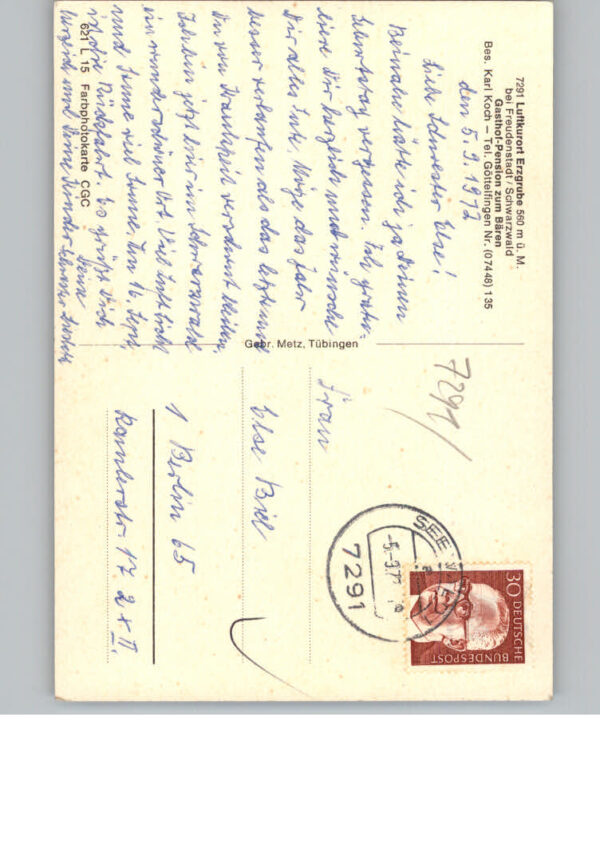 7291 Luftkurort Erzgrube 560 m ü. M.
bei Freudenstadt/Schwarzwald
Gasthof-Pension zum Bären
Bes. Karl Koch — Tel. Göttelfingen Nr. (07448) 135
den 5.9.1972
Liebe Schwester Else!
Beinahe hätte ich ja Deinen
Geburtstag vergessen. Ich gratu-
liere Dir herzlich und wünsche
Dir alles Gute. Möge das Jahr
besser verlaufen als das letzte und
Du von Krankheit verschont bleiben.
Ich bin jetzt hier im Schwarzwald
ein wunderschöner Ort Viel Luft Licht
und Sonne viel Sonne. Am 16. Sept.
ist die Rückfahrt. Es grüßt Dich
Deine
621 L 15 Farbphotokarte CGC
Gebr. Metz, Tübingen
7291
Frau
Else Biel
1 Berlin 65
17 2 x II.
SEEWALD
-5.-9.72
7291
30 DEUTSCHE
BUNDESPOST